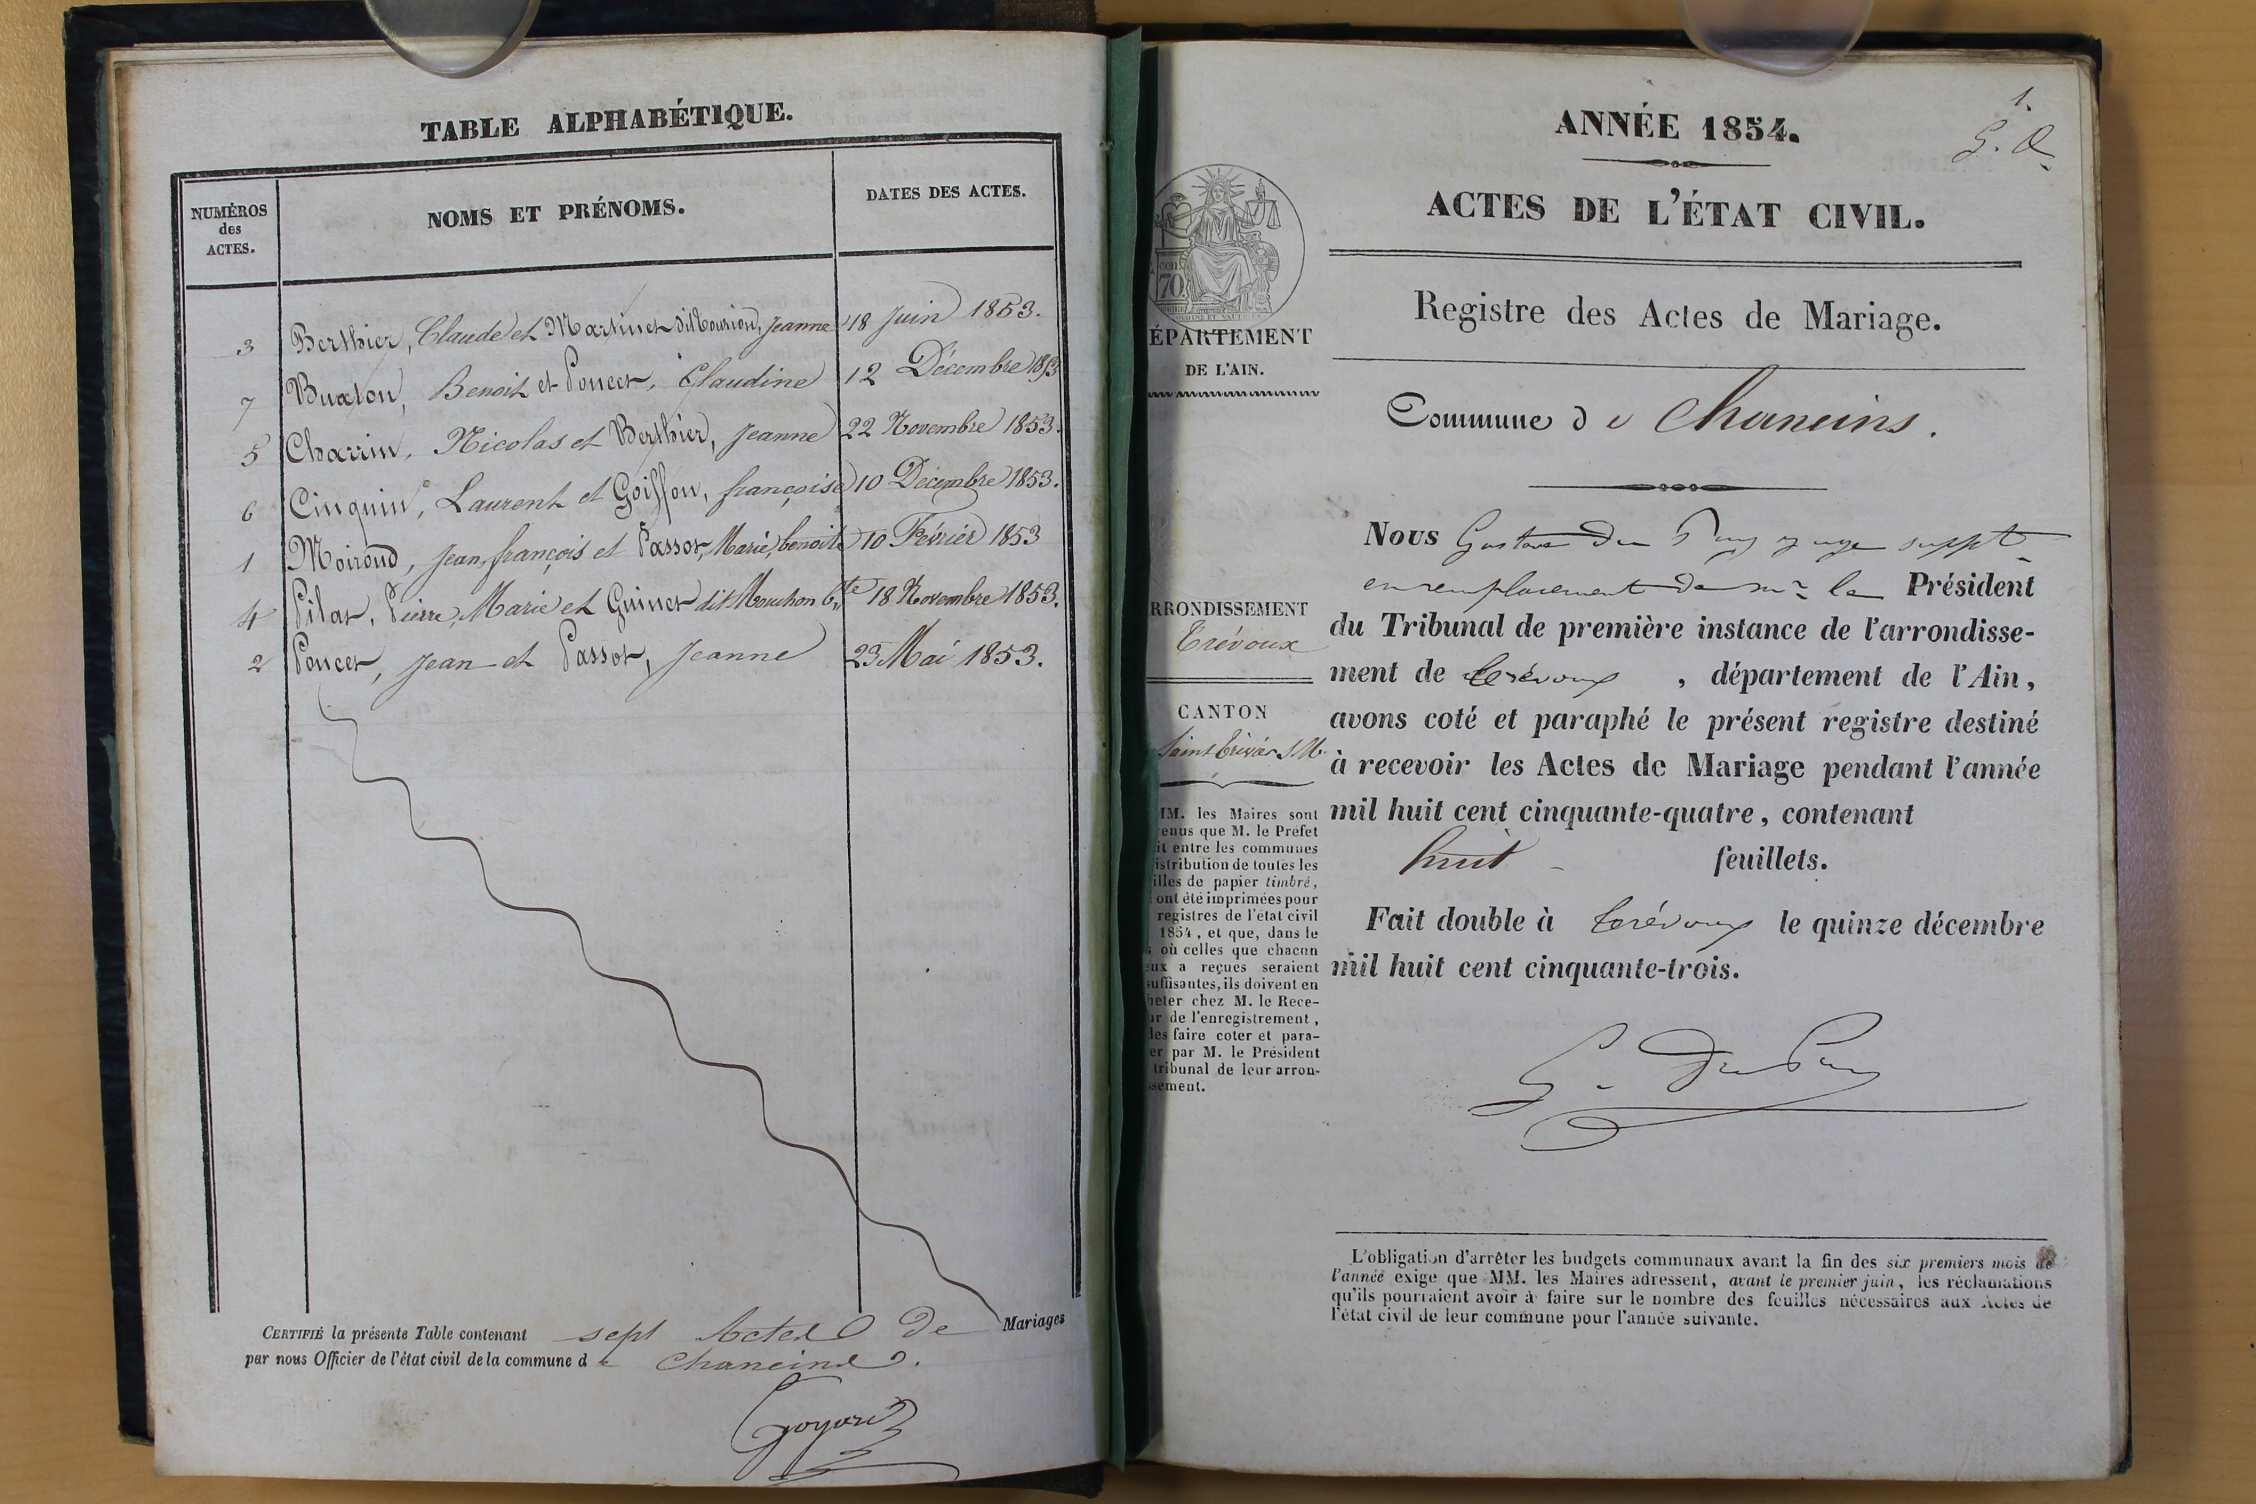 TABLE ALPHABÉTIQUE.
NUMÉROS
des
ACTES.
NOMS ET PRÉNOMS.
DATES DES ACTES.
3 Berthier, Claude et Martinet dit Jeanne 18 Juin 1853.
7 Buaton, Benoit et Poncet, Claudine 12 Décembre 1853
5 Charrin, Nicolas et Berthier, Jeanne 22 Novembre 1853.
6 Cinquin, Laurent et Goiffon, françoise 10 Décembre 1853.
1 Moiroud, Jean, françois et Passot, Marie, benoite 10 Février 1853
4 Pilat, Pierre, Marie et Guinet dit Mouchon 18 Novembre 1853.
2 Poncet, Jean et Passot, Jeanne 23 Mai 1853.
CERTIFIÉ la présente Table contenant sept Actes De Mariages
par nous Officier de l'état civil de la commune d e Chaneins.
Goyard
1.
ANNÉE 1854.
ACTES DE L'ÉTAT CIVIL.
Registre des Actes de Mariage.
70
ÉPARTEMENT
DE L'AIN.
Commune d e Chaneins.
RRONDISSEMENT
Trévoux
CANTON
Saint Trivier S M.
IM. les Maires sont
enus que M. le Préfet
it entre les communes
istribution de toutes les
illes de papier timbré,
ont été imprimées pour
registres de l'état civil
1854, et que, dans le
s où celles que chacun
eux a reçues seraient
suffisantes, ils doivent en
heter chez M. le Rece-
ur de l'enregistrement,
les faire coter et para-
er par M. le Président
tribunal de leur arron-
ssement.
Nous Gustave Du Puy juge suppt
en remplacement de Mr le Président
du Tribunal de première instance de l'arrondisse-
ment de Trévoux, département de l'Ain,
avons coté et paraphé le présent registre destiné
à recevoir les Actes de Mariage pendant l'année
mil huit cent cinquante-quatre, contenant
huit feuillets.
Fait double à Trévoux le quinze décembre
mil huit cent cinquante-trois.
G. Du Puy
L'obligation d'arrêter les budgets communaux avant la fin des six premiers mois de
l'année exige que MM. les Maires adressent, avant le premier juin, les réclamations
qu'ils pourraient avoir à faire sur le nombre des feuilles nécessaires aux Actes de
l'état civil de leur commune pour l'année suivante.